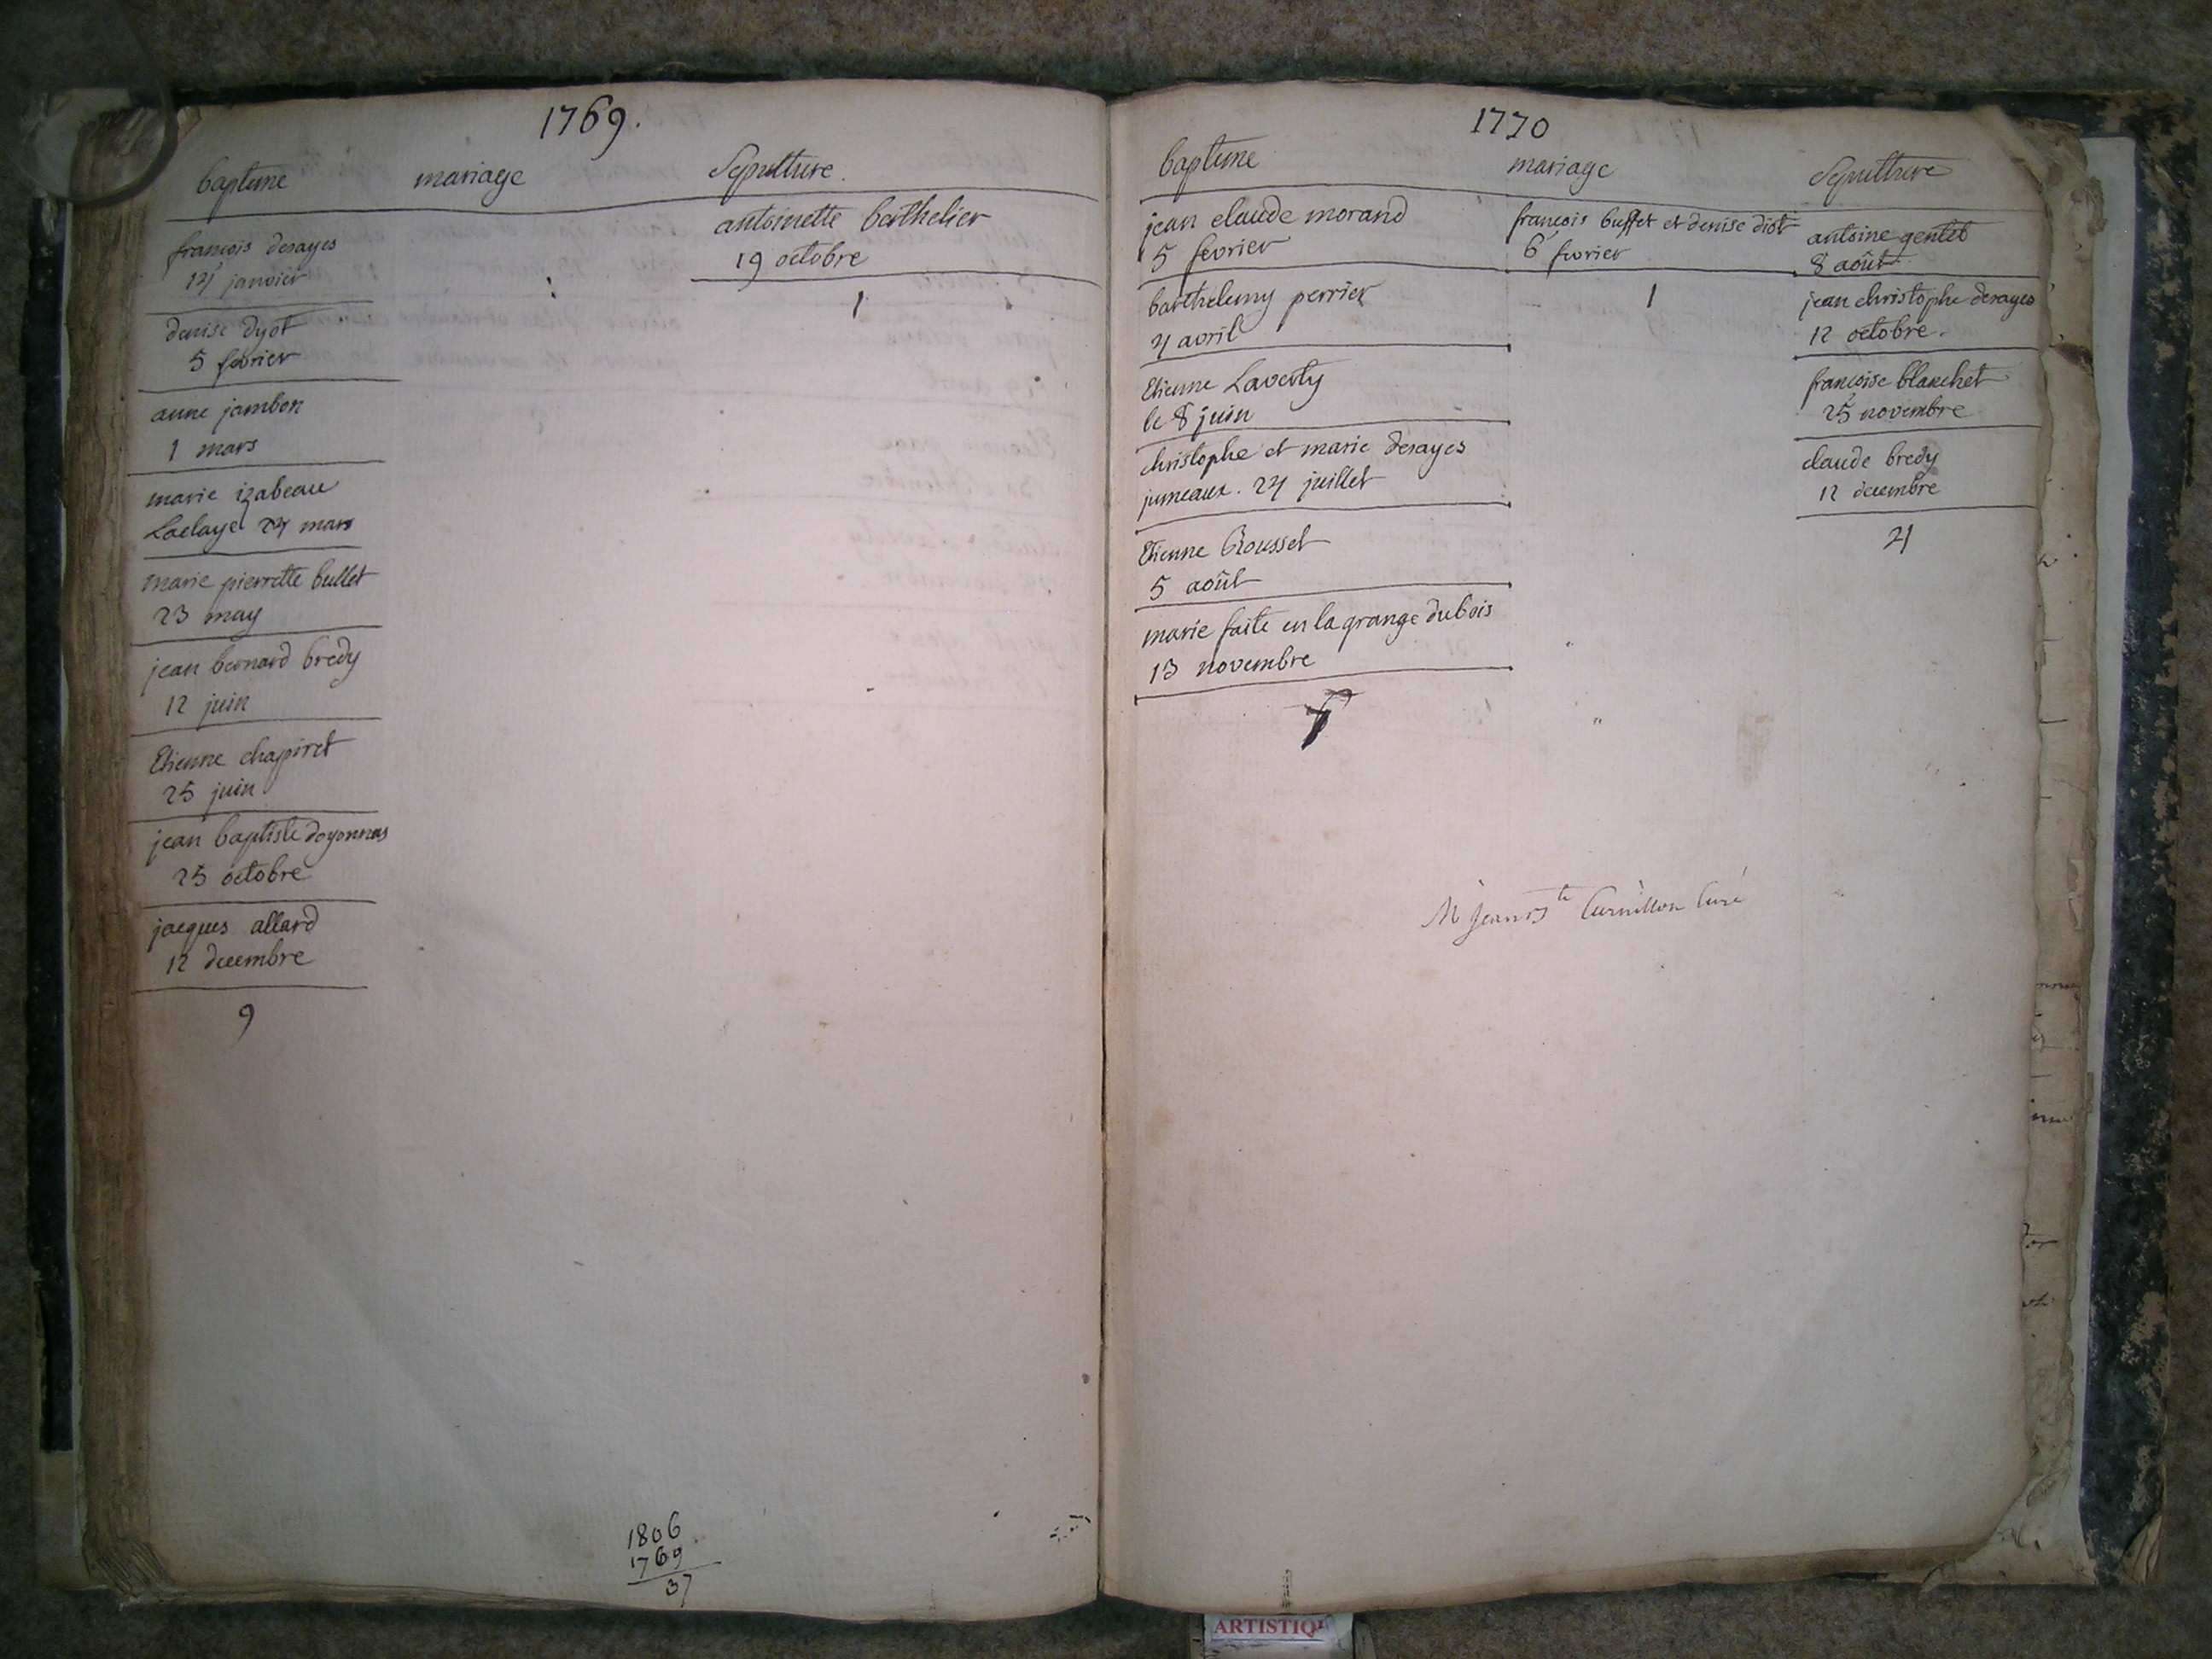 1769.
bapteme mariage Sepulture.
françois desayes
14 janvier
denise dyot
5 fevrier
anne jambon
1 mars
marie izabeau
Laclaye 24 mars
marie pierrette bullet
23 may
jean bernard bredy
12 juin
Etienne chapiret
25 juin
jean baptiste doyonnas
25 octobre
jacques allard
12 decembre
9
antoinette berthelier
19 octobre
1
1806
1769
37
1770
bapteme mariage Sepulture
jean claude morand
5 fevrier
barthelemy perrier
4 avril
Etienne Laverty
le 8 juin
christophe et marie desayes
jumeaux. 24 juillet
Etienne Rousset
5 août
marie faite en la grange dubois
13 novembre
7
françois buffet et denise diot
6 fevrier
1
antoine gentet
8 août
jean christophe desayes
12 octobre.
françoise blanchet
25 novembre
claude bredy
12 decembre
4
M Jean Bte Curnillon Curé
ARTISTIQ